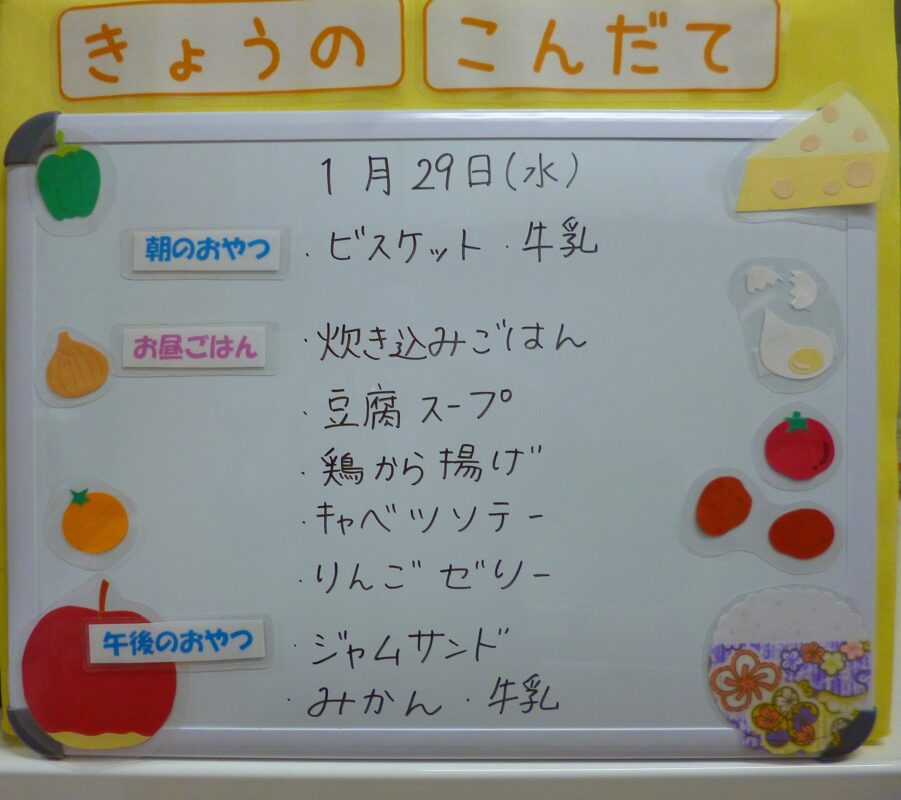 きょうの こんだて
1月29日(水)
朝のおやつ ・ビスケット・牛乳
お昼ごはん ・炊き込みごはん
・豆腐スープ
・鶏から揚げ
・キャベツソテー
・りんごゼリー
午後のおやつ ・ジャムサンド
・みかん・牛乳